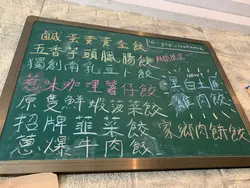 鹹蛋黃黃金餃
五香芋頭臘腸餃
獨創南乳豆卜餃
惹味咖哩薯仔餃
原隻鮮蝦菠菜餃
招牌韮菜餃
蔥爆牛肉餃
蛋白
雞肉餃
家鄉肉餅餃